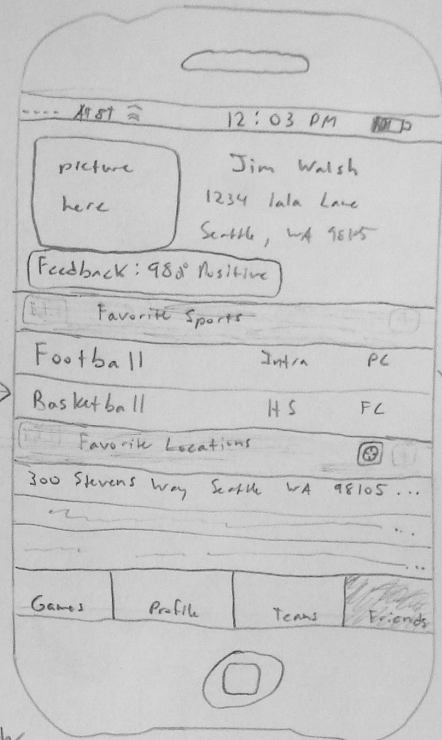 AT&T 12:03 PM
picture
here
Jim Walsh
1234 lala Lane
Seattle, WA 98105
Feedback: 98% Positive
Favorite Sports
Football Intra PC
Basketball HS FC
Favorite Locations
300 Stevens Way Seattle WA 98105 ...
...
...
Games Profile Teams Friends